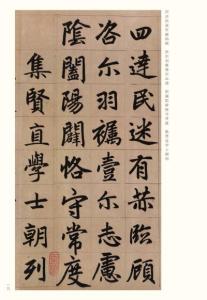 四達民迷有恭臨顧
咨尔羽襦壹尔志慮
陰闔陽闢恪守常度
集賢直學士朝列